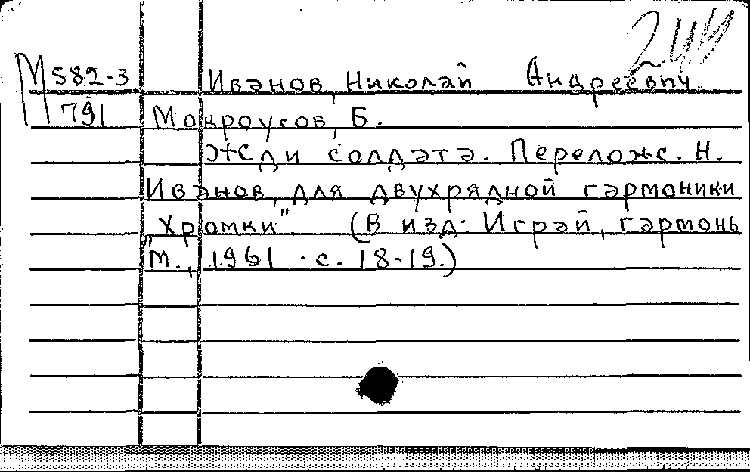 244
М582-3 Иванов, Николай Андреевич
791 Мокроусов, Б.
Жди солдата. Перелож. Н.
Иванов, для двухрядной гармоники
"Хромки" (В изд: Играй, гармонь
М., 1961 . с. 18-19.)